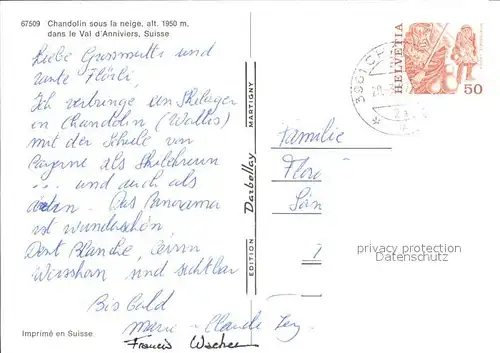 67509 Chandolin sous la neige, alt. 1950 m.
dans le Val d'Anniviers, Suisse
Liebe Grossmutti und
tante Flörli,
Ich verbringe ein Skilager
in Chandolin (Wallis)
mit der Schule von
Payerne als Skilehrerin
... und auch als
Das Panorama
ist wunderschön,
Dent Blanche, Cervin
Weisshorn sind sichtbar
Bis bald
Marie-Claude
Francis
Imprimé en Suisse
EDITION Darbellay MARTIGNY
HELVETIA
50
Familie
Flor
privacy protection
Datenschutz